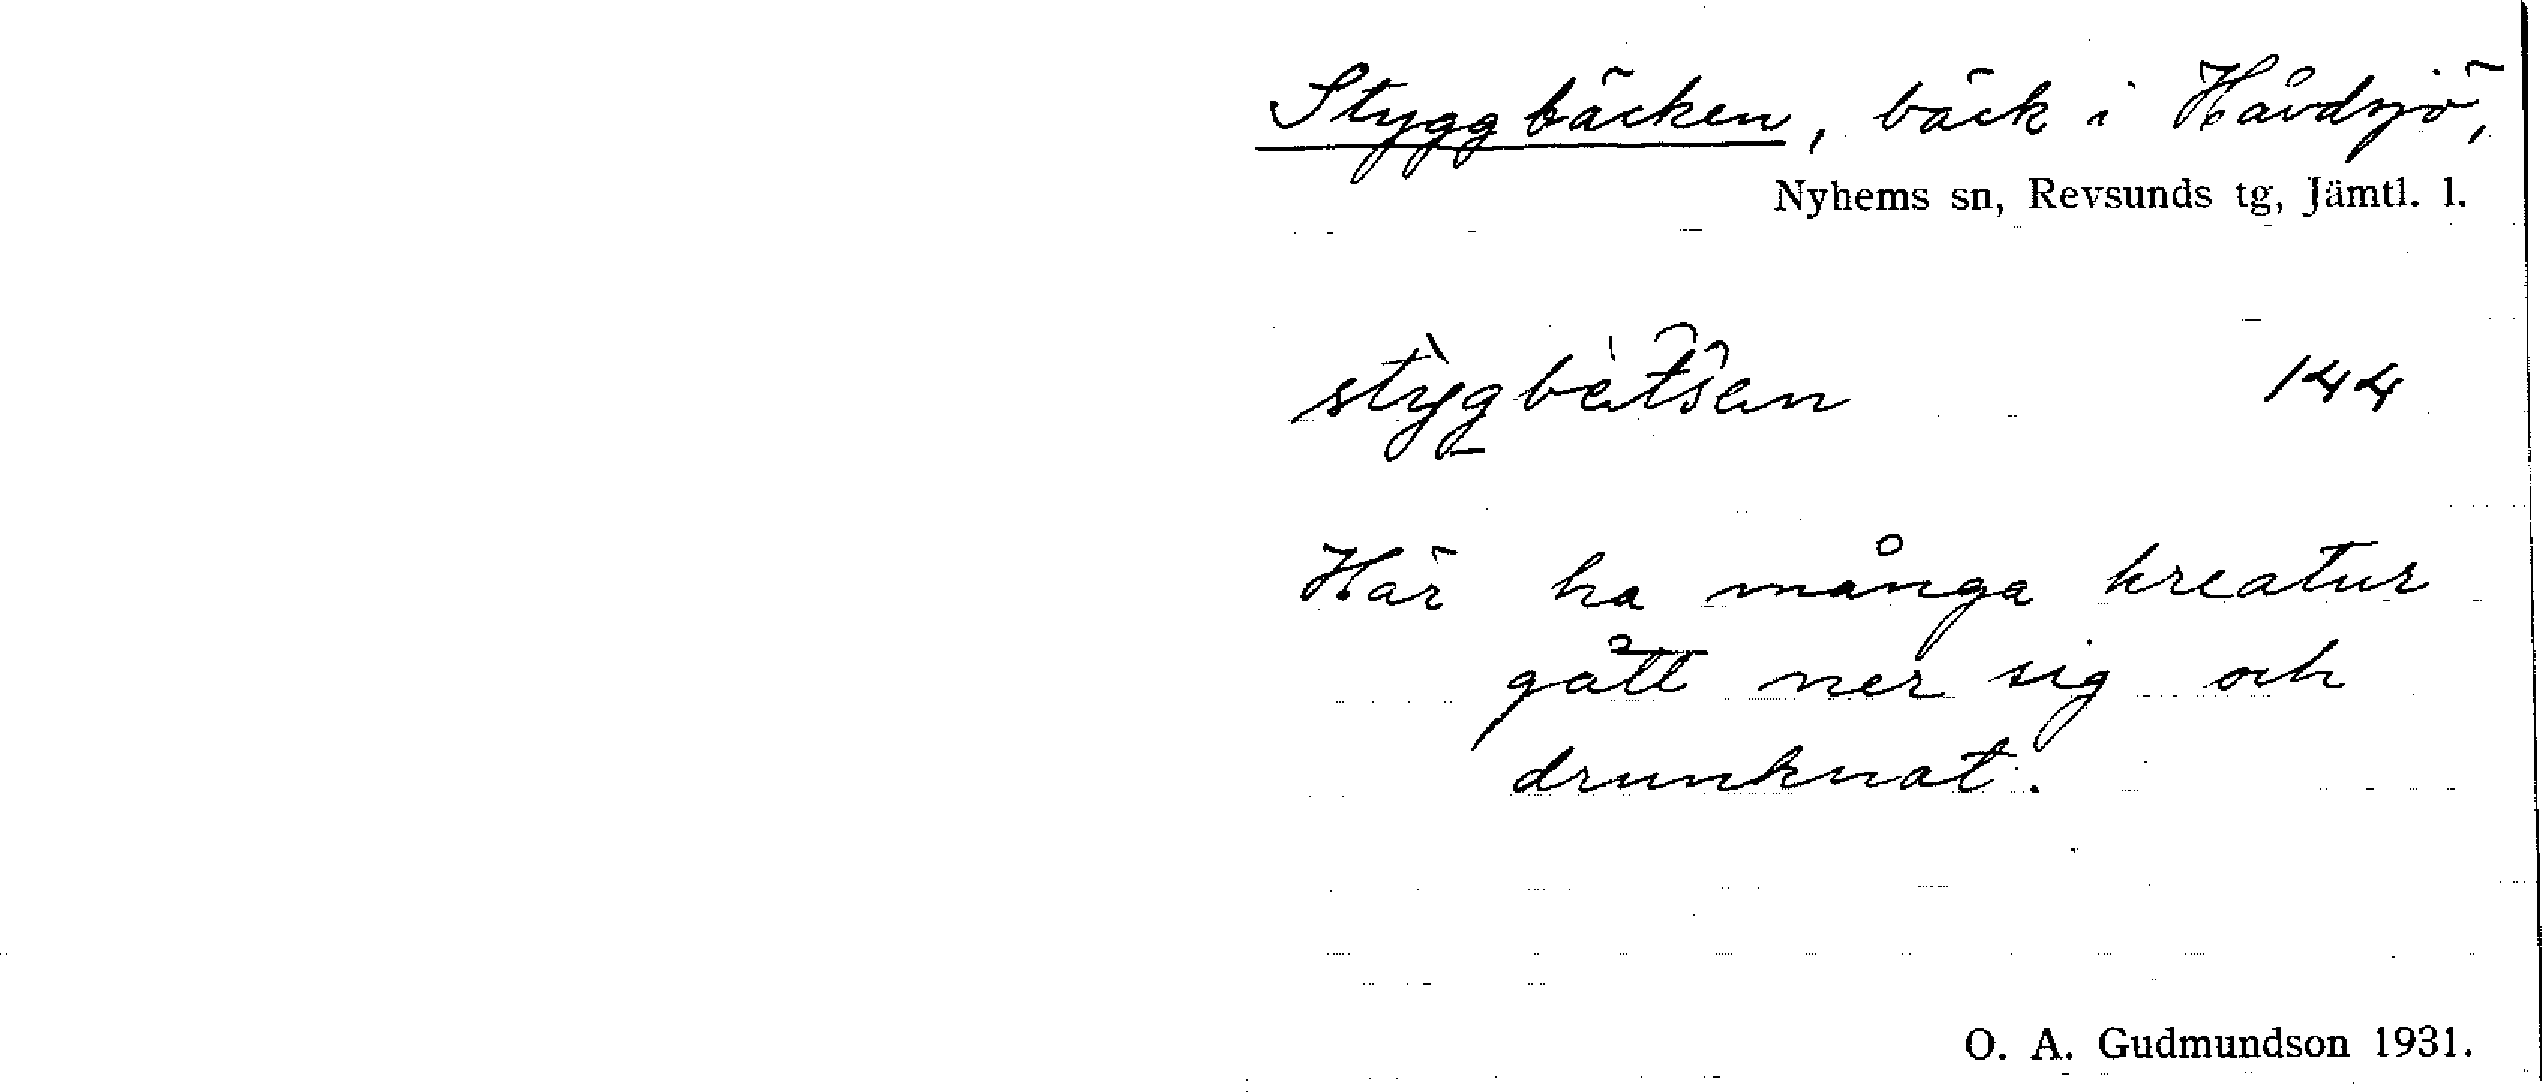 Styggbäcken, bäck i Håvdsjö,
Nyhems sn, Revsunds tg, Jämtl. l.
144
Här ha många kreatur
gått ner sig och
drunknat.
O. A. Gudmundson 1931.